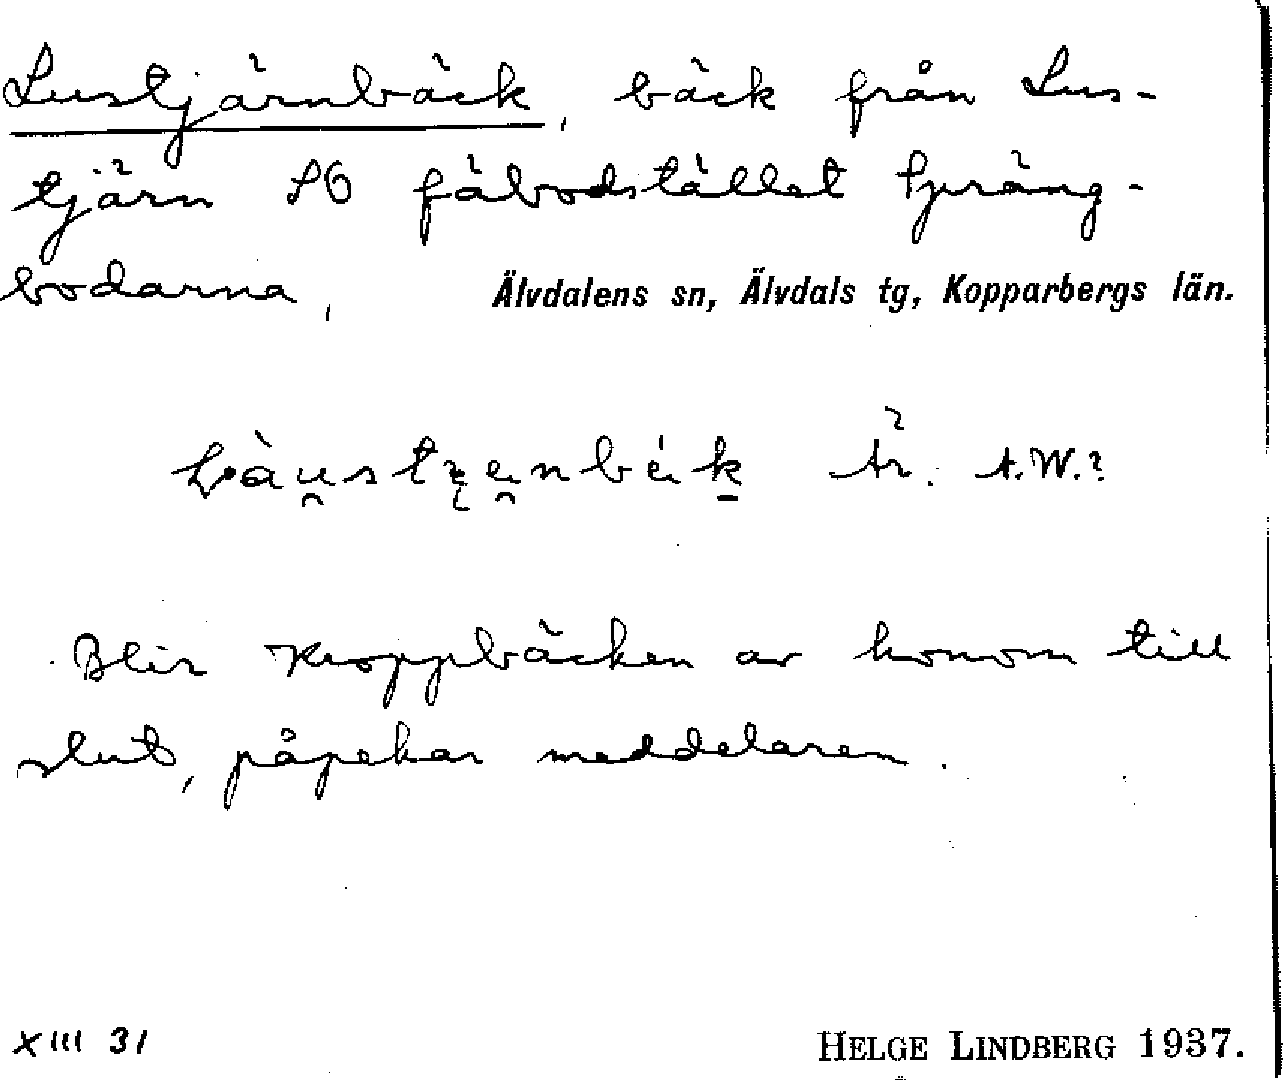 Lustjärnbäck, bäck från Lus-
tjärn SO fäbodstället Spräng-
bodarna, Älvdalens sn, Älvdals tg, Kopparbergs län.
Är. A.W.?
Blir Kroppbäcken av honom till
slut, påpekar meddelaren.
XIII 31 HELGE LINDBERG 1937.